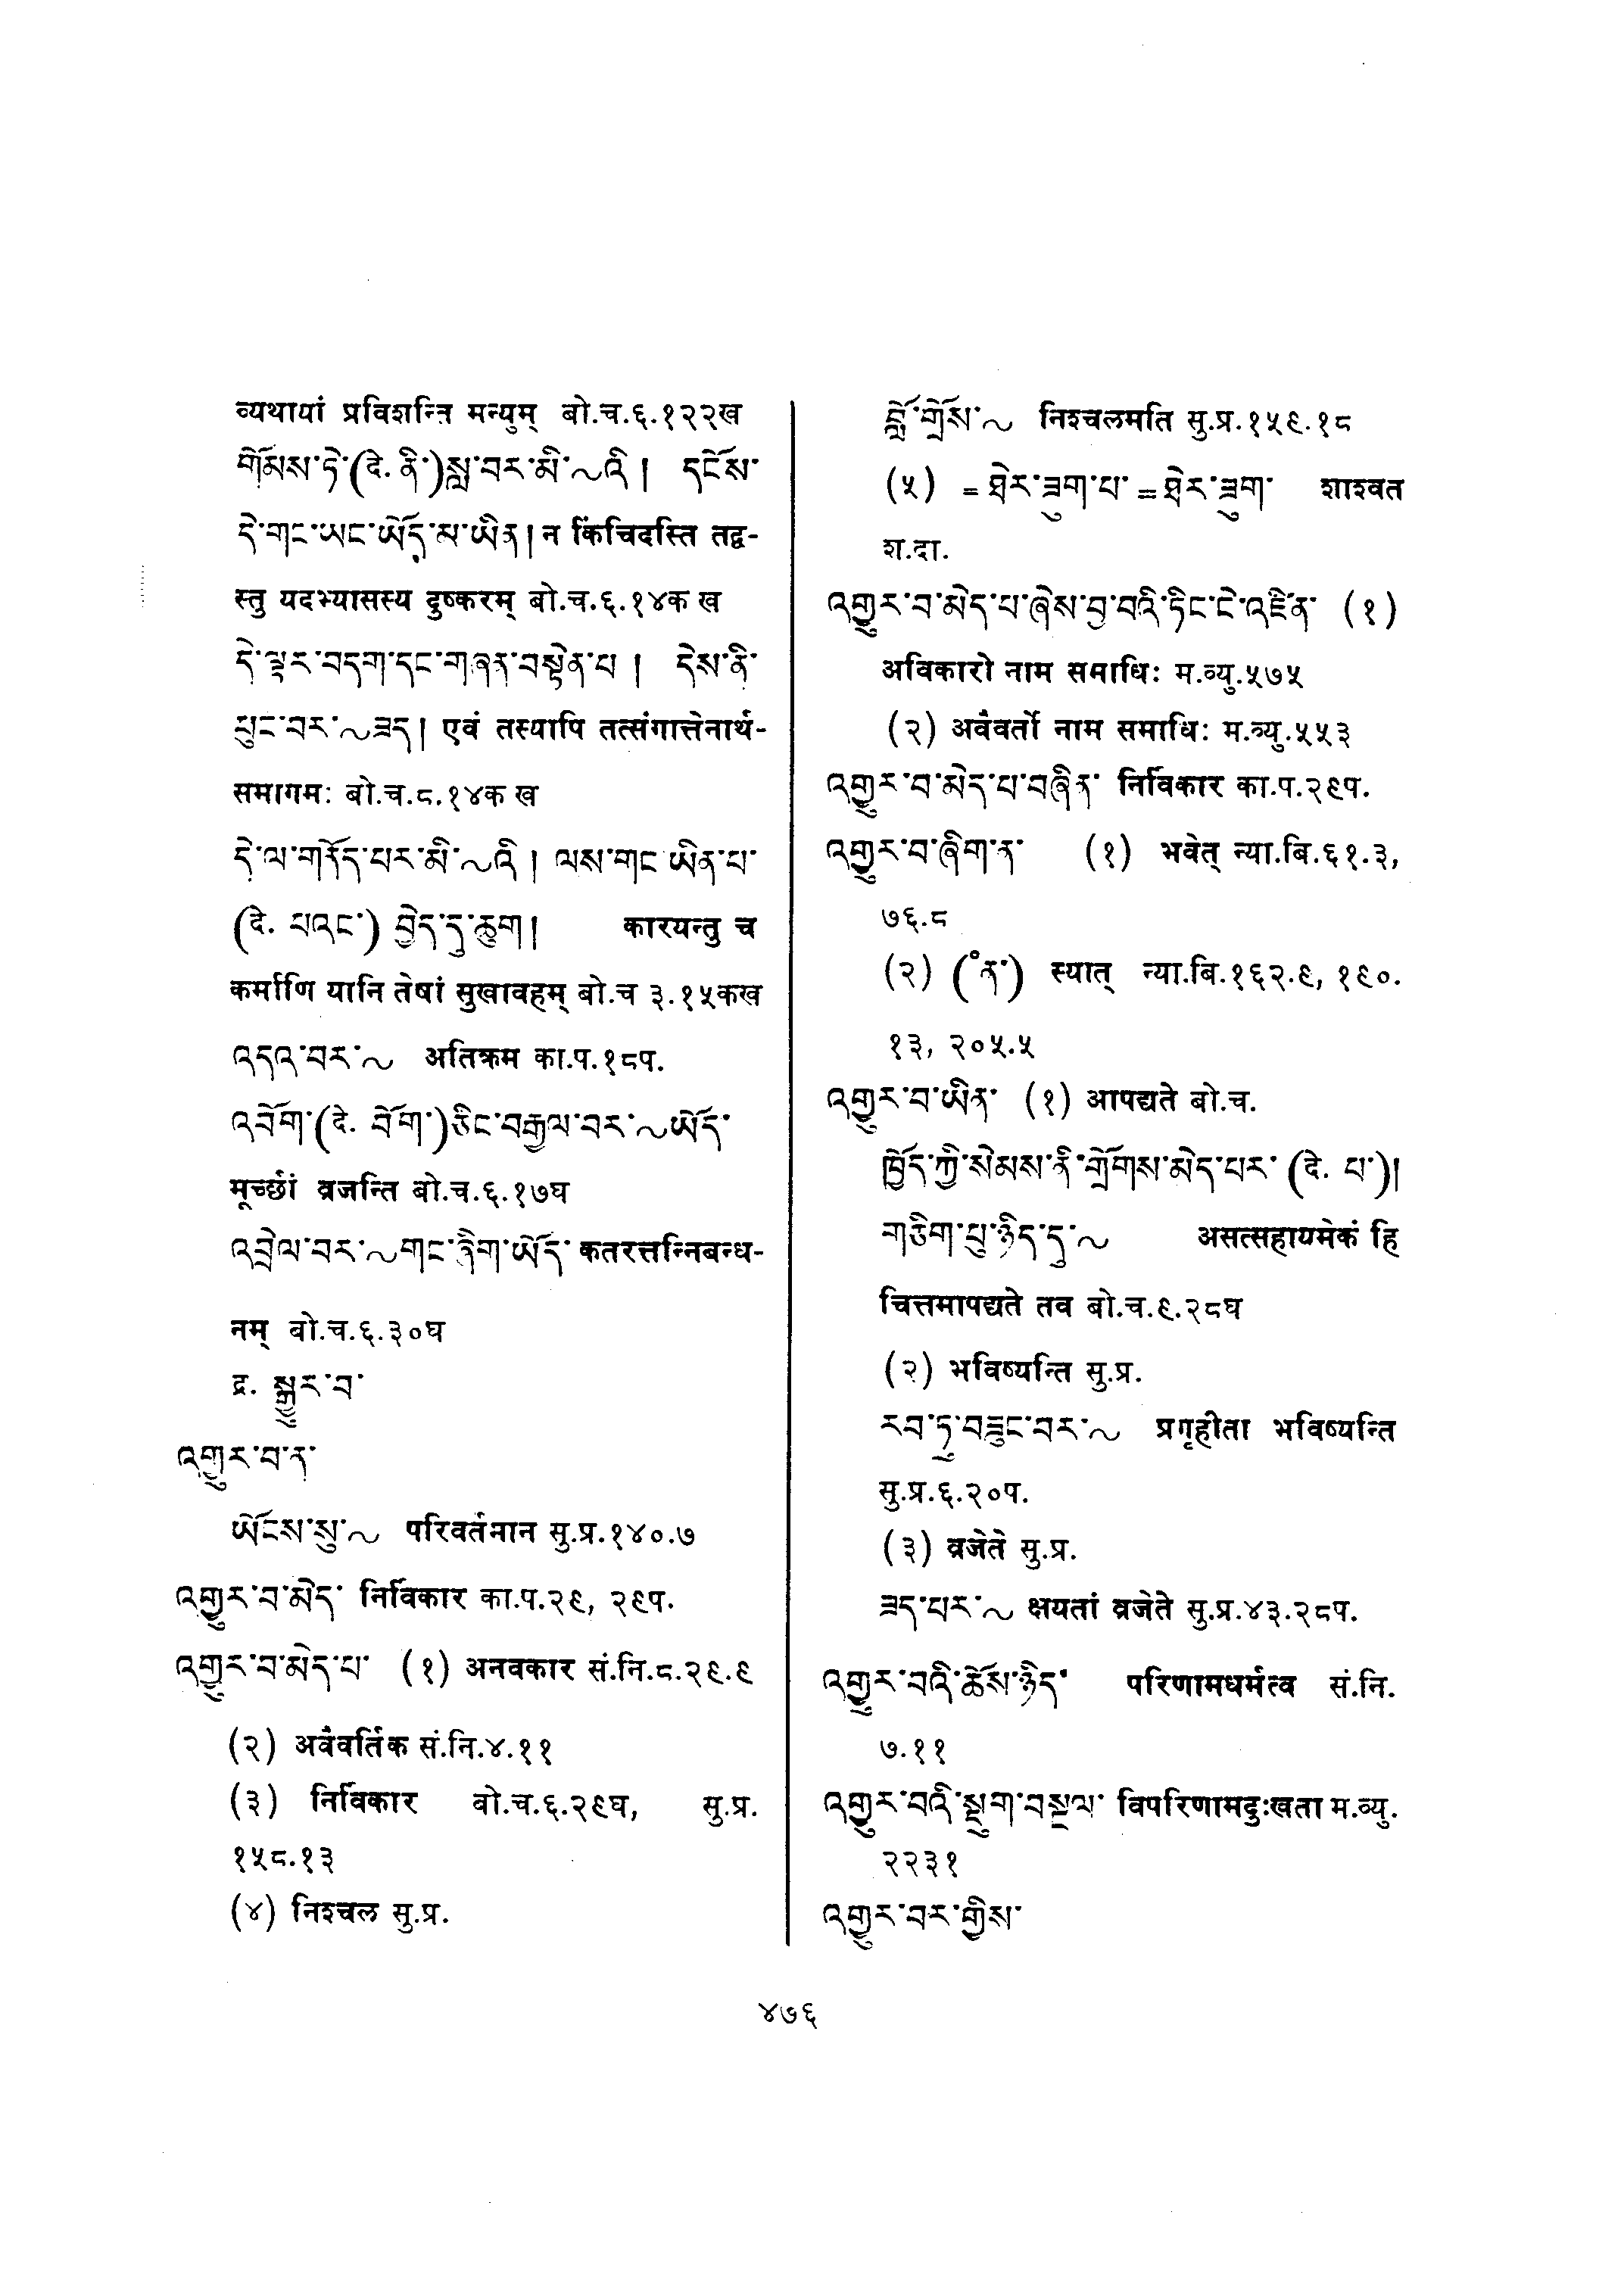 व्यथायां प्रविशन्ति मन्युम् बो.च.६.१२२ख
གོམས་ཏེ་(दे. ནི་)སླ་བར་མི་~འི། དངོས་
དེ་གང་ཡང་ཡོད་མ་ཡིན། न किंचिदस्ति तद्व-
स्तु यदभ्यासस्य दुष्करम् बो.च.६.१४क ख
དེ་ལྟར་བདག་དང་གཞན་བསྟེན་པ། དེས་ནི་
ཕུང་བར་~ཟད། एवं तस्यापि तत्संगात्तेनार्थ-
समागमः बो.च.८.१४क ख
དེ་ལ་གནོད་པར་མི་~འི། ལས་གང་ཡིན་པ་
(दे. པའང་) བྱེད་དུ་ཆུག། कारयन्तु च
कर्माणि यानि तेषां सुखावहम् बो.च ३.१५कख
འདའ་བར་~ अतिक्रम का.प.१८प.
འབོག་(दे. བོག་)ཅིང་བརྒྱལ་བར་~ཡོད་
मूर्च्छां व्रजन्ति बो.च.६.१७घ
འབྲེལ་བར་~གང་ཞིག་ཡོད་ कतरत्तन्निबन्ध-
नम् बो.च.६.३०घ
द्र. སྒྱུར་བ་
འགྱུར་བ་ན་
ཡོངས་སུ་~ परिवर्तमान सु.प्र.१४०.७
འགྱུར་བ་མེད་ निर्विकार का.प.२९, २९प.
འགྱུར་བ་མེད་པ་ (१) अनवकार सं.नि.८.२९.९
(२) अवैवर्तिक सं.नि.४.११
(३) निर्विकार बो.च.६.२९घ, सु.प्र.
१५८.१३
(४) निश्चल सु.प्र.
བློ་གྲོས་~ निश्चलमति सु.प्र.१५९.१८
(५) =ཐེར་ཟུག་པ་=ཐེར་ཟུག་ शाश्वत
श.दा.
འགྱུར་བ་མེད་པ་ཞེས་བྱ་བའི་ཏིང་ངེ་འཛིན་ (१)
अविकारो नाम समाधिः म.व्यु.५७५
(२) अवैवर्तो नाम समाधिः म.व्यु.५५३
འགྱུར་བ་མེད་པ་བཞིན་ निर्विकार का.प.२९प.
འགྱུར་བ་ཞིག་ན་ (१) भवेत् न्या.बि.६१.३,
७६.८
(२) (°ནི་) स्यात् न्या.बि.१६२.९, १९०.
१३, २०५.५
འགྱུར་བ་ཡིན་ (१) आपद्यते बो.च.
ཁྱོད་ཀྱི་སེམས་ནི་གྲོགས་མེད་པར་ (दे. པ་)།
གཅིག་པུ་ཉིད་དུ་~ असत्सहायमेकं हि
चित्तमापद्यते तव बो.च.९.२८घ
(२) भविष्यन्ति सु.प्र.
རབ་ཏུ་བཟུང་བར་~ प्रगृहीता भविष्यन्ति
सु.प्र.६.२०प.
(३) व्रजेते सु.प्र.
ཟད་པར་~ क्षयतां व्रजेते सु.प्र.४३.२८प.
འགྱུར་བའི་ཆོས་ཉིད་ परिणामधर्मत्व सं.नि.
७.११
འགྱུར་བའི་སྡུག་བསྔལ་ विपरिणामदुःखता म.व्यु.
२२३१
འགྱུར་བར་གྱིས་
४७६